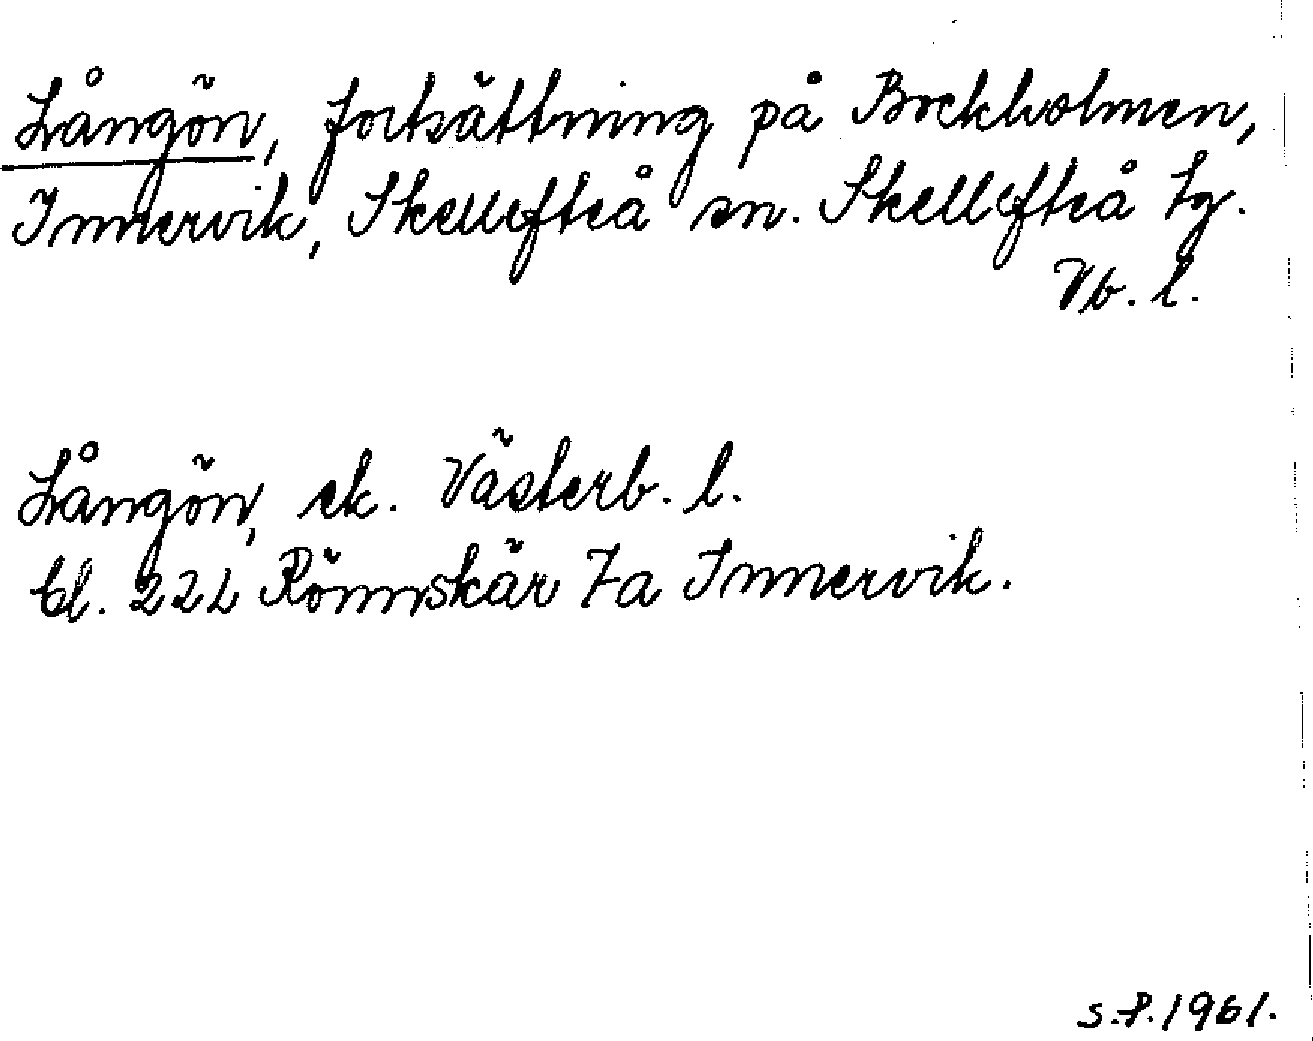 Långön, fortsättning på Bockholmen,
Innervik, Skellefteå sn. Skellefteå tg.
Vb. l.
Långön, ek. Västerb. l.
bl. 22L Rönnskär 7a Innervik.
S.P. 1961.